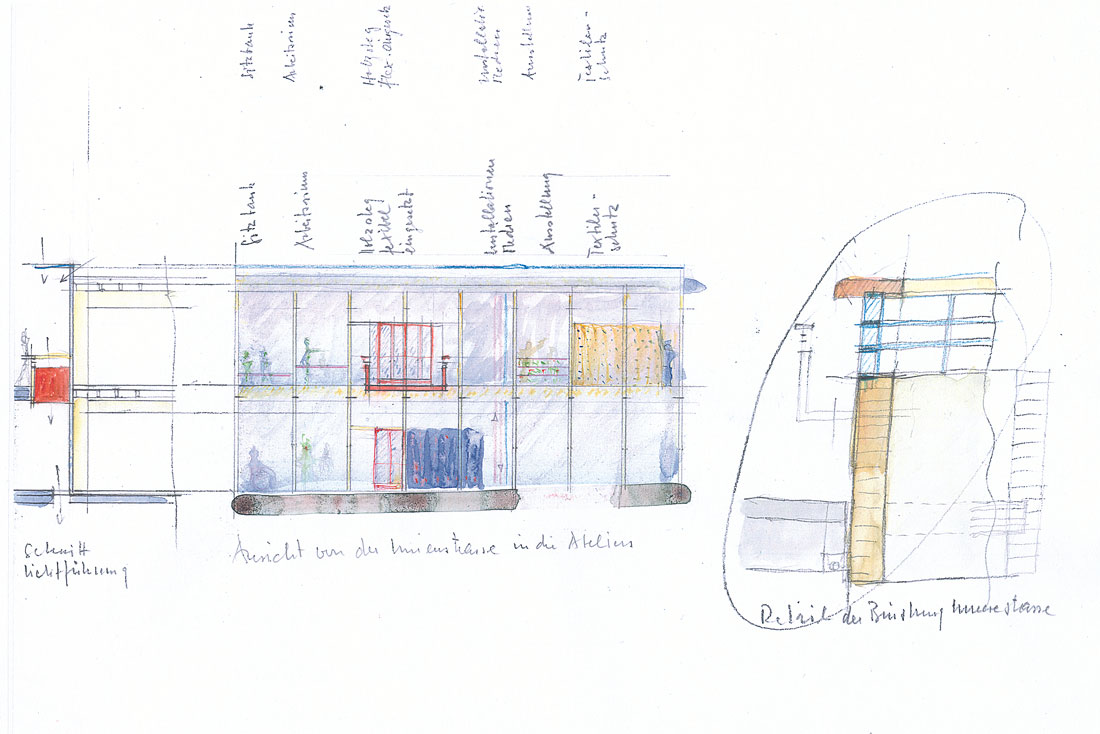 Sitzbank
Arbeitsraum
Holzsteg
flex. eingesetzt
Installation
Medien
Ausstellung
Textiler-
schutz
Sitzbank
Arbeitsraum
Holzsteg
flexibel
eingesetzt
Installationen
Medien
Ausstellung
Textiler-
schutz
Schnitt
Lichtführung
Ansicht von der Innenstrasse in die Ateliers
Detail der Brüstung Innenstrasse